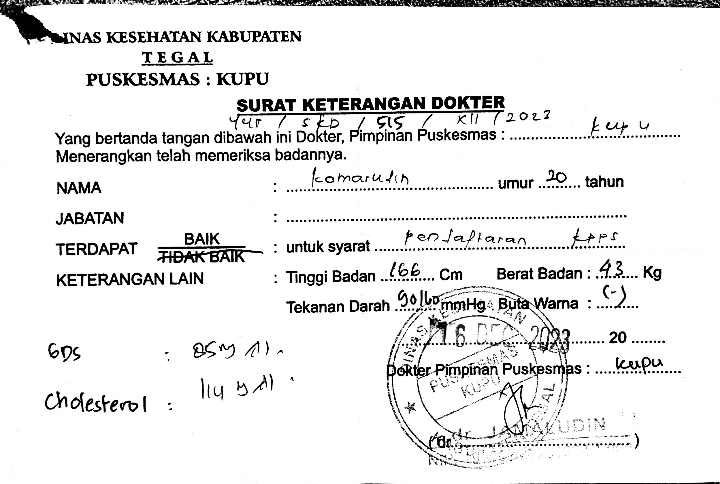 DINAS KESEHATAN KABUPATEN
TEGAL
PUSKESMAS : KUPU
SURAT KETERANGAN DOKTER
445 / SKD / 515 / XII / 2023
Yang bertanda tangan dibawah ini Dokter, Pimpinan Puskesmas : kupu
Menerangkan telah memeriksa badannya.
NAMA : Komarudin umur 20 tahun
JABATAN :
TERDAPAT BAIK / TIDAK BAIK : untuk syarat pendaftaran KPPS
KETERANGAN LAIN : Tinggi Badan 166 Cm Berat Badan : 43 Kg
Tekanan Darah 90/60 mmHg Buta Warna : (-)
16 DEC 2023 20
GDS :
Dokter Pimpinan Puskesmas : kupu
Cholesterol : 114
DINAS KESEHATAN
PUSKESMAS
KUPU
(dr. JAMALUDIN)